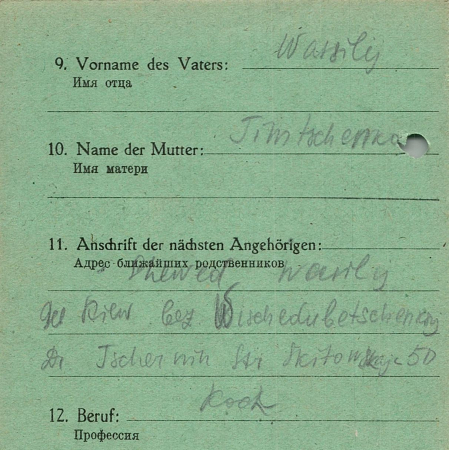 9. Vorname des Vaters: Wassily
Имя отца
10. Name der Mutter: Timtschenko
Имя матери
11. Anschrift der nächsten Angehörigen:
Адрес ближайших родственников
Wassily
Kiew Bez
Tschernin Str 50
12. Beruf: Koch
Профессия